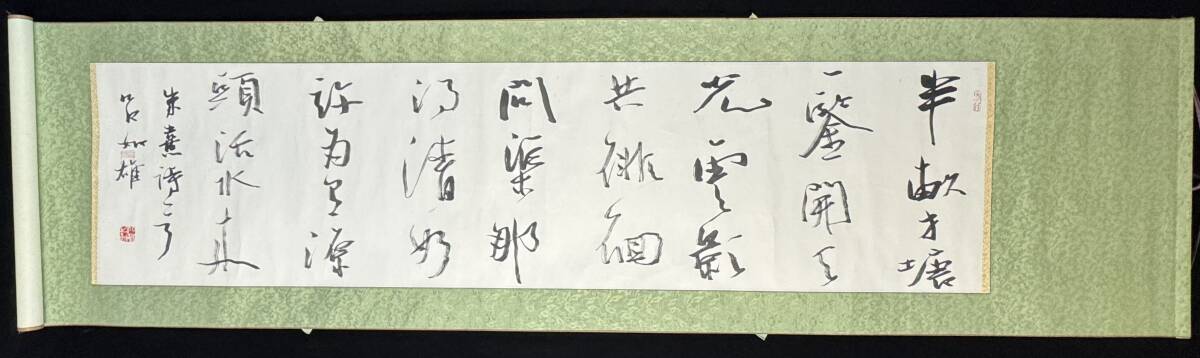 半畝方塘
一鑒開天
光雲影
共徘徊
問渠那
得清如
許為有源
頭活水来
朱熹詩一首
呂如雄